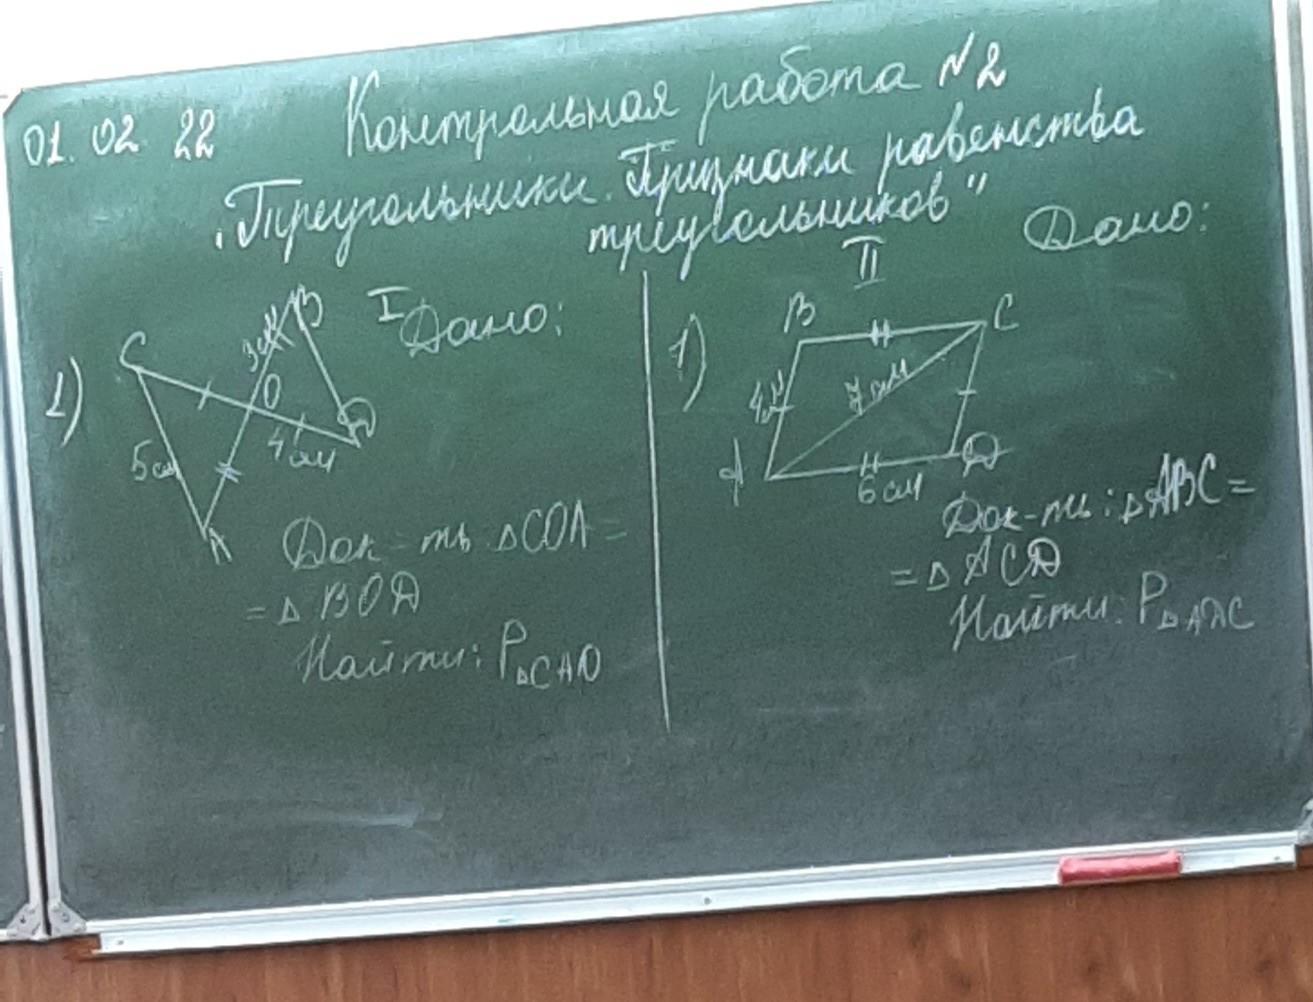 01. 02 22 Контрольная работа №2
„Треугольники. Признаки равенства
треугольников"
I Дано:
1)
C
B
3см
O
D
4 см
5см
A
Док-ть: △COA =
= △ BOD
Найти: P△CAO
II
Дано:
1)
B
C
4см
7 см
A
D
6 см
Док-ть: △ABC =
= △ ACD
Найти: P△ADC